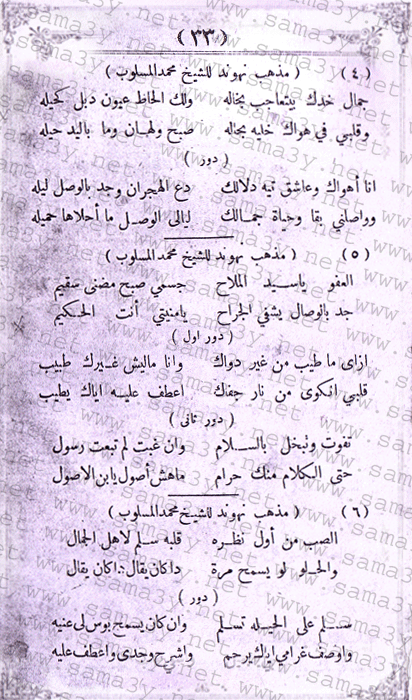 ( ٣٣ )
( ٤ ) ( مذهب نهوند للشيخ محمد المسلوب )
جمال خدك يتعاجب بخاله ولك الحاظ عيون دبل كحيله
وقلبي في هواك خليه بحاله صبح ولهان وما باليد حيله
( دور )
انا أهواك وعاشق تيه دلالك دع الهجران وجد بالوصل ليله
وواصلني بقا وحياة جمالك ليالى الوصل ما أحلاها جميله
( ٥ ) ( مذهب نهوند للشيخ محمد المسلوب )
العفو ياسيد الملاح جسمي صبح مضنى سقيم
جد بالوصال يشفي الجراح يامنيتي أنت الحكيم
( دور اول )
ازاى ما طيب من غير دواك وانا ماليش غيرك طبيب
قلبي انكوى من نار جفاك اعطف عليه اياك يطيب
( دور ثانى )
تفوت وتبخل بالسلام وان غبت لم تبعت رسول
حتى الكلام منك حرام ماهش أصول يا ابن الاصول
( ٦ ) ( مذهب نهوند للشيخ محمد المسلوب )
الصب من أول نظره قلبه سلم لاهل الجمال
والحلو لو يسمح مرة دا كان يقال دا كان يقال
( دور )
سلم على الحيله تسلم وان كان يسمح بوس لى عنيه
واوصف غرامي اياك يرحم واشرح وجدى واعطف عليه
www.sama3y.net